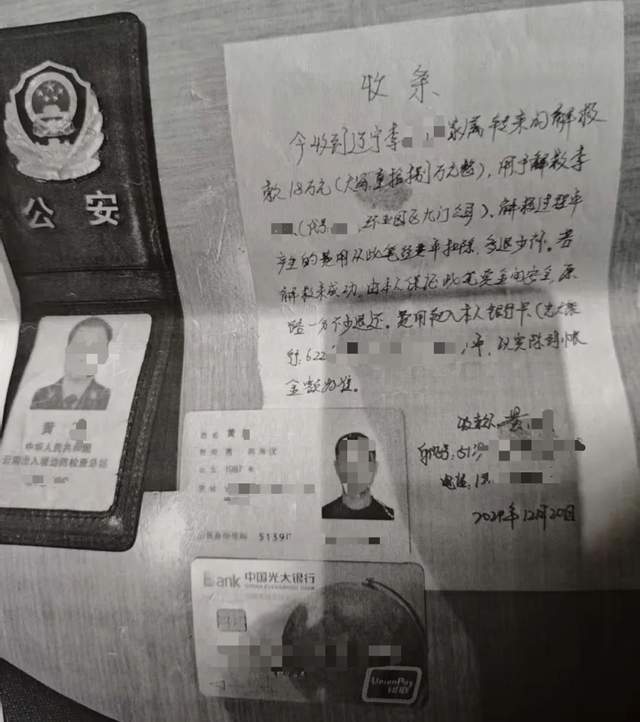 公安
黄
中华人民共和国
云南出入境边防检查总站
收条
今收到辽宁李 家属转来的解救
款18万元(大写:壹拾捌万元整),用于解救李
(代号 , 环亚园区大门 )、解救过程中
产生的费用从此笔经费中扣除,多退少补。若
解救未成功,由本人保证此笔资金的安全,原
路一分不少退还。费用转入本人银行卡(光大银
行:622 )中,以实际到账
金额为准。
收款人:黄
身份证号:5139
电话:1
2024年12月20日
姓名 黄
性别 男 民族 汉
出生 1987 年
住址
公民身份号码 5139
Bank 中国光大银行
CHINA EVERBRIGHT BANK
UnionPay
银联